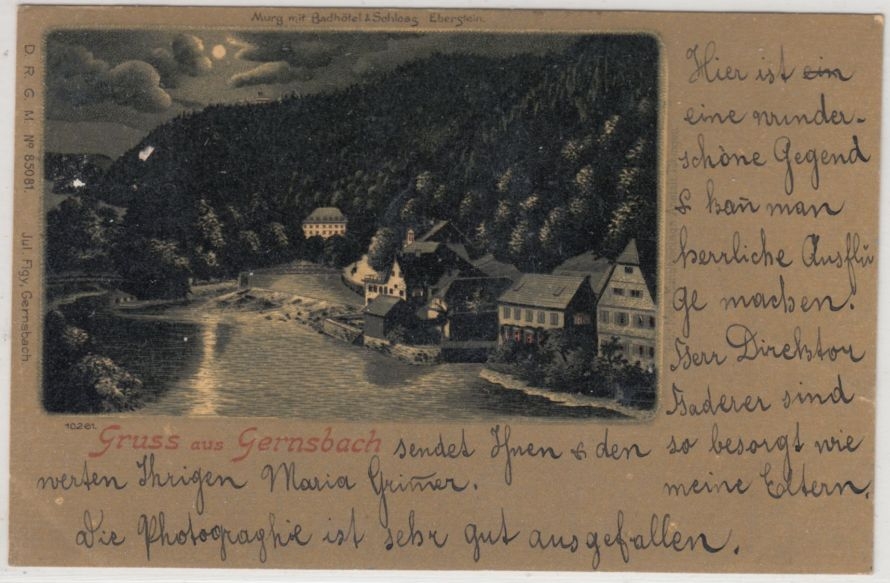 Murg mit Badhôtel & Schloss Eberstein.
D. R. G. M. No 85081. Jul. Figy, Gernsbach.
10261.
Gruss aus Gernsbach sendet Ihnen & den
werten Ihrigen Maria Grim̄er.
Die Photographie ist sehr gut ausgefallen.
Hier ist ein
eine wunder-
schöne Gegend
& kan̄ man
herrliche Ausflü
ge machen.
Herr Direktor
Baderer sind
so besorgt wie
meine Eltern.